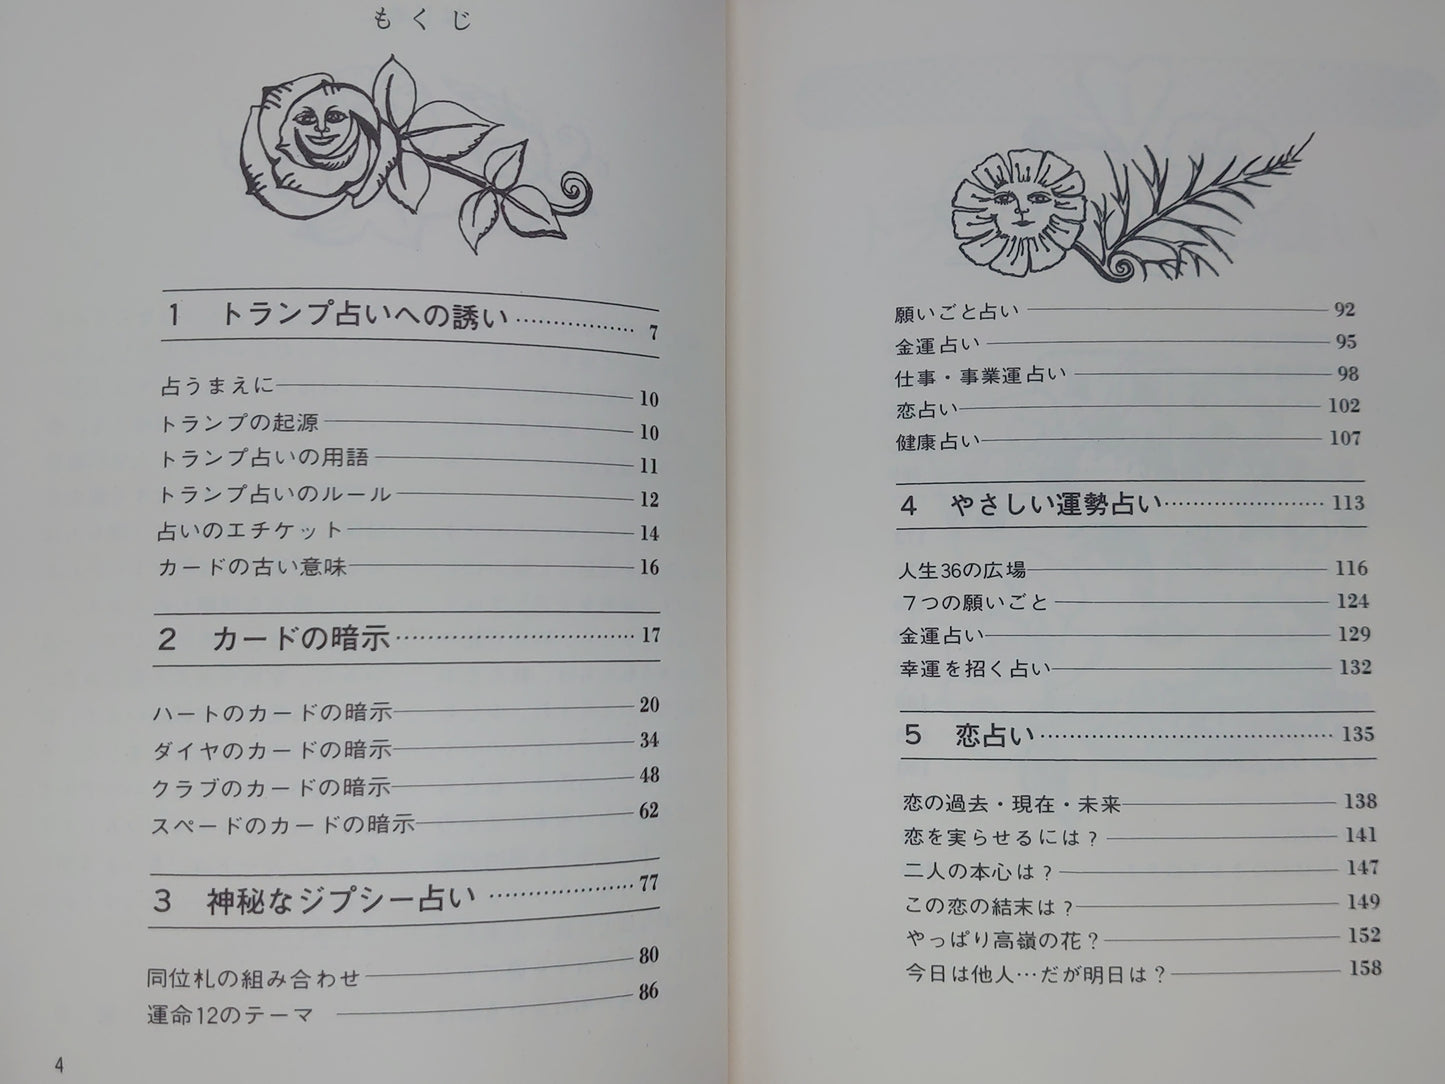 もくじ
1 トランプ占いへの誘い……………… 7
占うまえに 10
トランプの起源 10
トランプ占いの用語 11
トランプ占いのルール 12
占いのエチケット 14
カードの古い意味 16
2 カードの暗示……………………… 17
ハートのカードの暗示 20
ダイヤのカードの暗示 34
クラブのカードの暗示 48
スペードのカードの暗示 62
3 神秘なジプシー占い……………… 77
同位札の組み合わせ 80
運命12のテーマ 86
4
願いごと占い 92
金運占い 95
仕事・事業運占い 98
恋占い 102
健康占い 107
4 やさしい運勢占い……………… 113
人生36の広場 116
7つの願いごと 124
金運占い 129
幸運を招く占い 132
5 恋占い……………………………… 135
恋の過去・現在・未来 138
恋を実らせるには? 141
二人の本心は? 147
この恋の結末は? 149
やっぱり高嶺の花? 152
今日は他人…だが明日は? 158